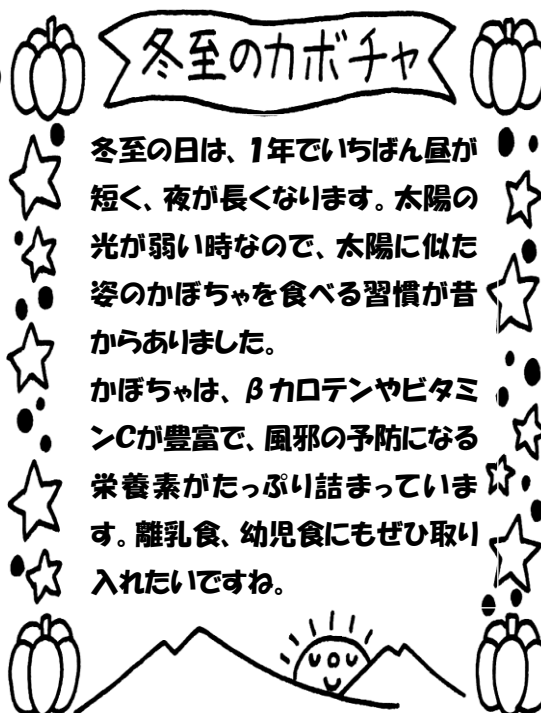 冬至のカボチャ
冬至の日は、1年でいちばん昼が
短く、夜が長くなります。太陽の
光が弱い時なので、太陽に似た
姿のかぼちゃを食べる習慣が昔
からありました。
かぼちゃは、βカロテンやビタミ
ンCが豊富で、風邪の予防になる
栄養素がたっぷり詰まっていま
す。離乳食、幼児食にもぜひ取り
入れたいですね。